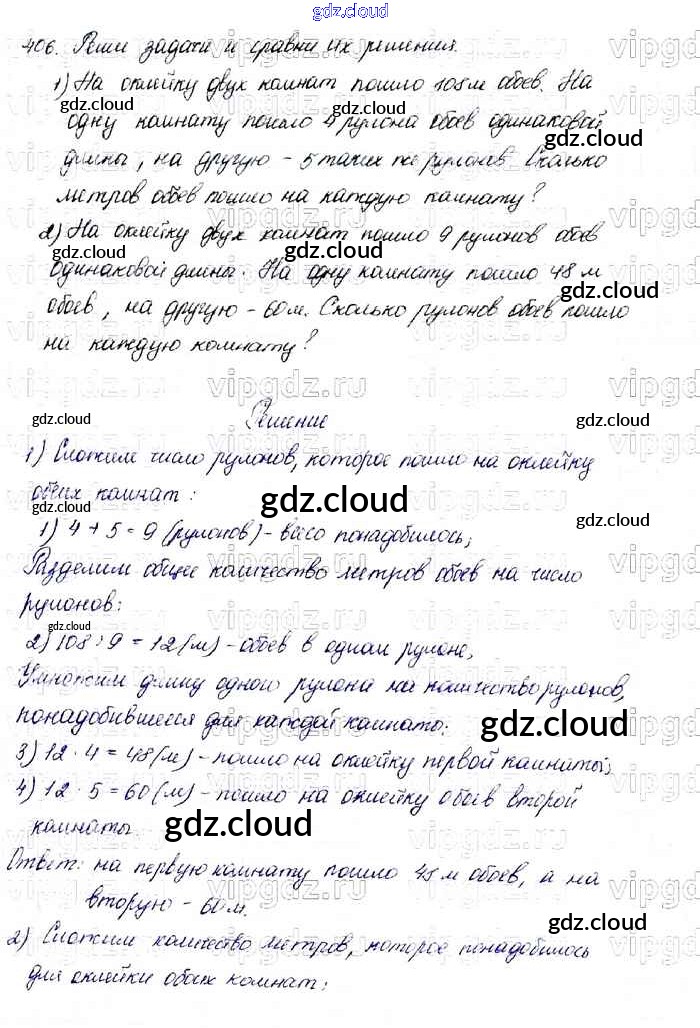 gdz.cloud
406. Реши задачи и сравни их решения.
1) На оклейку двух комнат пошло 108 м обоев. На
одну комнату пошло 4 рулона обоев одинаковой
длины, на другую - 5 таких же рулонов. Сколько
метров обоев пошло на каждую комнату?
2) На оклейку двух комнат пошло 9 рулонов обоев
одинаковой длины. На одну комнату пошло 48 м
обоев, на другую - 60 м. Сколько рулонов обоев пошло
на каждую комнату?
Решение
1) Сложим число рулонов, которое пошло на оклейку
обеих комнат:
1) 4 + 5 = 9 (рулонов) - всего понадобилось;
Разделим общее количество метров обоев на число
рулонов:
2) 108 : 9 = 12 (м) - обоев в одном рулоне;
Умножим длину одного рулона на количество рулонов,
понадобившееся для каждой комнаты:
3) 12 · 4 = 48 (м) - пошло на оклейку первой комнаты;
4) 12 · 5 = 60 (м) - пошло на оклейку обоев второй
комнаты
Ответ: на первую комнату пошло 48 м обоев, а на
вторую - 60 м.
2) Сложим количество метров, которое понадобилось
для оклейки обоих комнат: